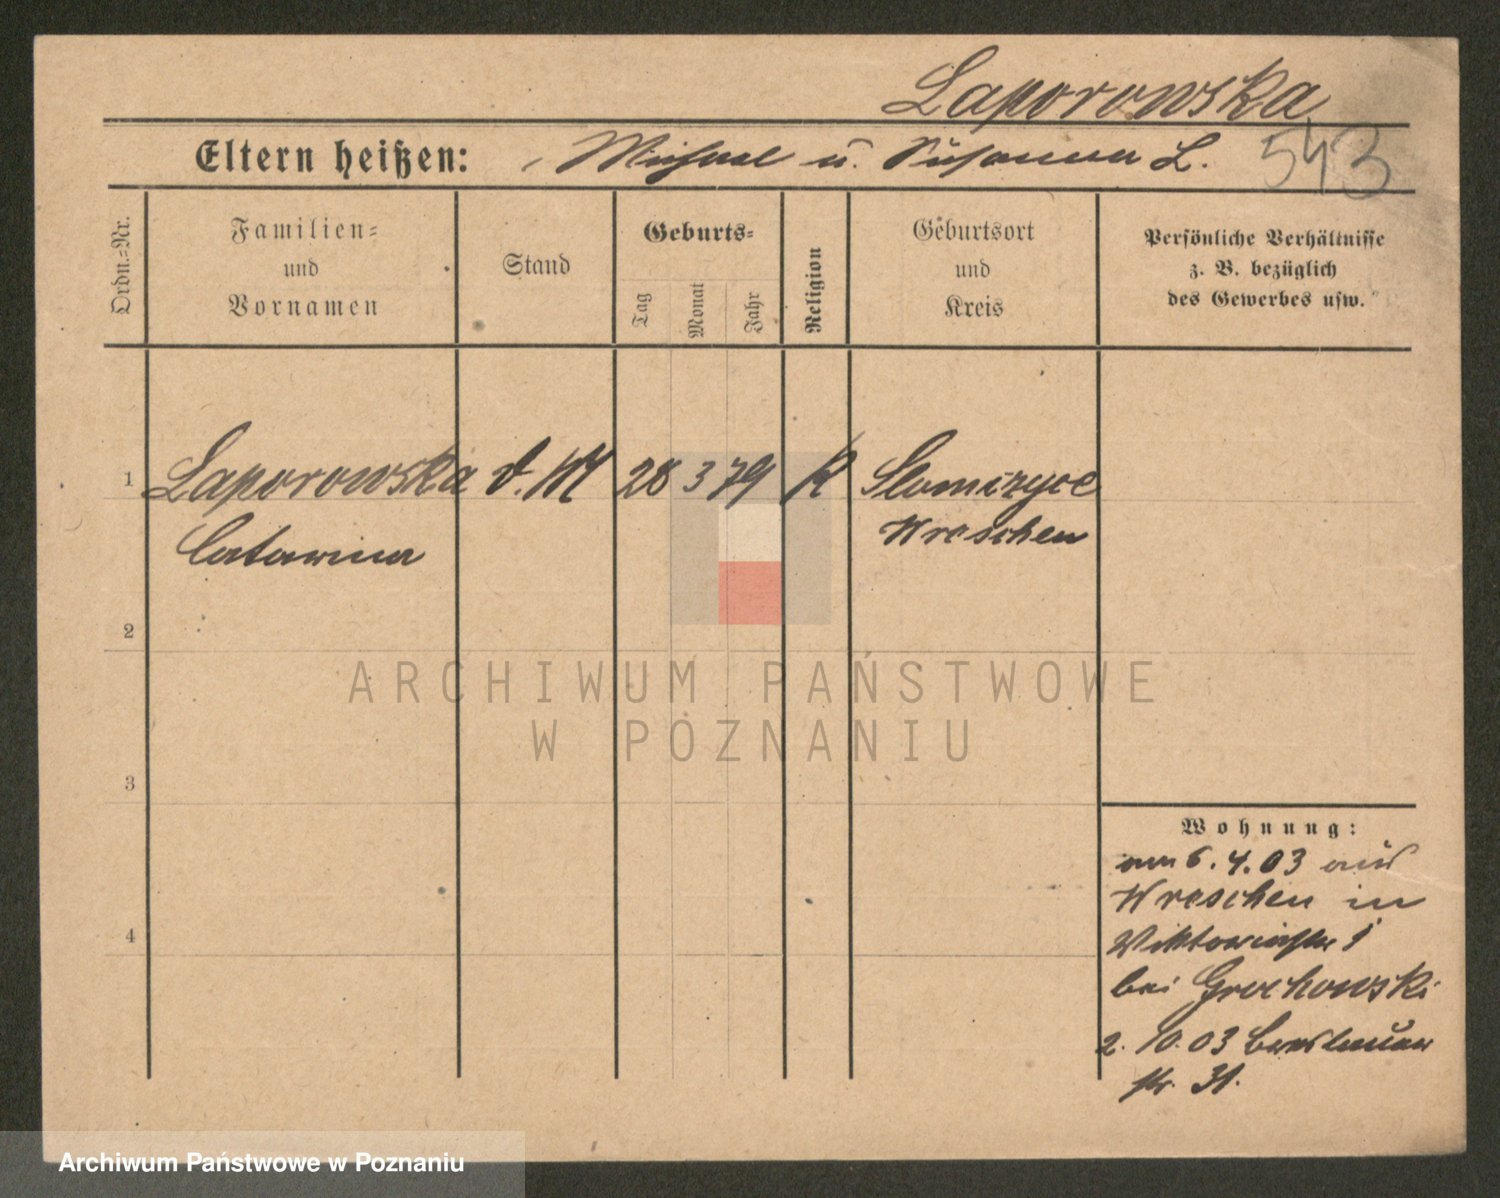 Laporowska
Eltern heißen: Michael u. Susanna L.
543
Ordn.-Nr.
Familien-
und
Vornamen
Stand
Geburts-
Tag
Monat
Jahr
Religion
Geburtsort
und
Kreis
Persönliche Verhältnisse
z. B. bezüglich
des Gewerbes usw.
1 Laporowska d. M 28 3 79 K Slomczyce
Catarina Wreschen
2
3
4
Wohnung:
am 6. 4. 03 aus
Wreschen in
Viktoriastr 1
bei Grochowski
2. 10. 03 Breslauer
str. 31.
ARCHIWUM PAŃSTWOWE
W POZNANIU
Archiwum Państwowe w Poznaniu